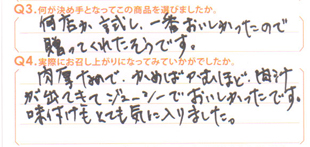 Q3.何が決め手となってこの商品を選びましたか。
何店か試し、一番おいしかったので
贈ってくれたそうです。
Q4.実際にお召し上がりになってみていかがでしたか。
肉厚なので、かめばかむほど、肉汁
が出てきてジューシーでおいしかったです。
味付けもとても気に入りました。